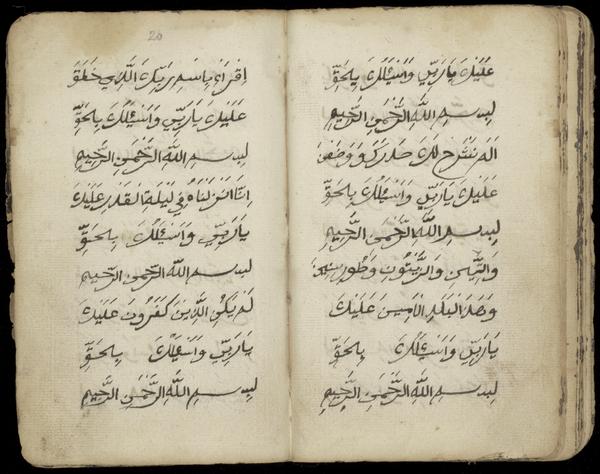 عَلَيْكَ يَارَبِّي وَاَسْئَلُكَ بِحَقِّ
بِسْمِ اللَّهِ الرَّحْمَنِ الرَّحِيمِ
اَلَمْ نَشْرَحْ لَكَ صَدْرَكَ وَوَضَعْنَ
عَلَيْكَ يَارَبِّي وَاَسْئَلُكَ بِحَقِّ
بِسْمِ اللَّهِ الرَّحْمَنِ الرَّحِيمِ
وَالتِّينِ وَالزَّيْتُونِ وَطُورِ سِنِينَ
وَهَذَا الْبَلَدِ الْاَمِينِ عَلَيْكَ
يَارَبِّي وَاَسْئَلُكَ بِحَقِّ
بِسْمِ اللَّهِ الرَّحْمَنِ الرَّحِيمِ
20
اِقْرَاْ بِاسْمِ رَبِّكَ الَّذِي خَلَقَ
عَلَيْكَ يَارَبِّي وَاَسْئَلُكَ بِحَقِّ
بِسْمِ اللَّهِ الرَّحْمَنِ الرَّحِيمِ
اِنَّا اَنْزَلْنَاهُ فِي لَيْلَةِ الْقَدْرِ عَلَيْكَ
يَارَبِّي وَاَسْئَلُكَ بِحَقِّ
بِسْمِ اللَّهِ الرَّحْمَنِ الرَّحِيمِ
لَمْ يَكُنِ الَّذِينَ كَفَرُوا عَلَيْكَ
يَارَبِّي وَاَسْئَلُكَ بِحَقِّ
بِسْمِ اللَّهِ الرَّحْمَنِ الرَّحِيمِ